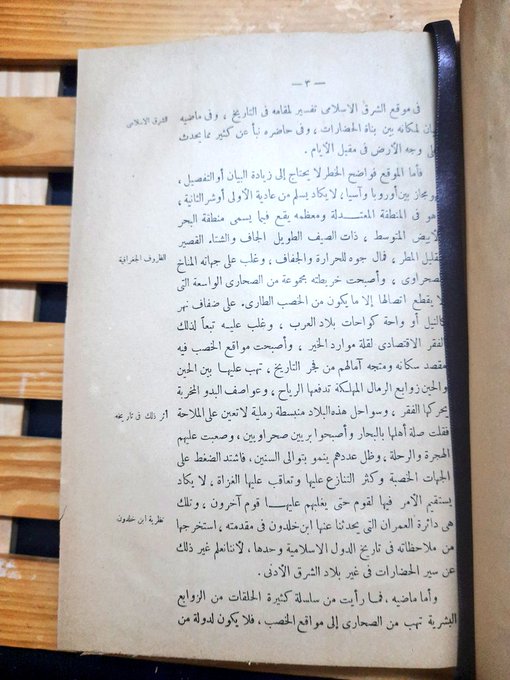 — ٣ —
فى موقع الشرق الاسلامى تفسير لمقامه فى التاريخ ، وفى ماضيه
الشرق الاسلامى
لمكانه بين بناة الحضارات ، وفى حاضره نبأ عن كثير مما يحدث
وجه الأرض فى مقبل الأيام .
فأما الموقع فواضح الخطر لا يحتاج إلى زيادة البيان أو التفصيل ،
ومجاز بين أوروبا وآسيا ، لا يكاد يسلم من عادية الأولى أو شر الثانية ،
هو فى المنطقة المعتدلة ومعظمه يقع فيما يسمى منطقة البحر
الأبيض المتوسط ، ذات الصيف الطويل الجاف والشتاء القصير
القليل المطر ، فمال جوه للحرارة والجفاف ، وغلب على جهاته المناخ
الظروف الجغرافية
الصحراوى ، وأصبحت خريطته مجموعة من الصحارى الواسعة التى
لا يقطع اتصالها إلا ما يكون من الخصب الطارىء على ضفاف نهر
كالنيل أو واحة كواحات بلاد العرب ، وغلب عليه تبعاً لذلك
الفقر الاقتصادى لقلة موارد الخير ، وأصبحت مواقع الخصب فيه
مقصد سكانه ومتجه آمالهم من فجر التاريخ ، تهب عليها بين الحين
والحين زوابع الرمال المهلكة تدفعها الرياح ، وعواصف البدو المخربة
يحركها الفقر ، وسواحل هذه البلاد منبسطة رملية لا تعين على الملاحة
أثر ذلك فى تاريخه
فقلت صلة أهلها بالبحار وأصبحوا بريين صحراويين ، وصعبت عليهم
الهجرة والرحلة ، وظل عددهم ينمو بتوالى السنين ، فاشتد الضغط على
الجهات الخصبة وكثر التنازع عليها وتعاقب عليها الغزاة ، لا يكاد
يستقيم الأمر فيها لقوم حتى يغلبهم عليها قوم آخرون ، وتلك
هى دائرة العمران التى يحدثنا عنها ابن خلدون فى مقدمته ، استخرجها
نظرية ابن خلدون
من ملاحظاته فى تاريخ الدول الاسلامية وحدها ، لأننا نعلم غير ذلك
عن سير الحضارات فى غير بلاد الشرق الأدنى .
وأما ماضيه ، فما رأيت من سلسلة كثيرة الحلقات من الزوابع
البشرية تهب من الصحارى إلى مواقع الخصب ، فلا يكون لدولة من